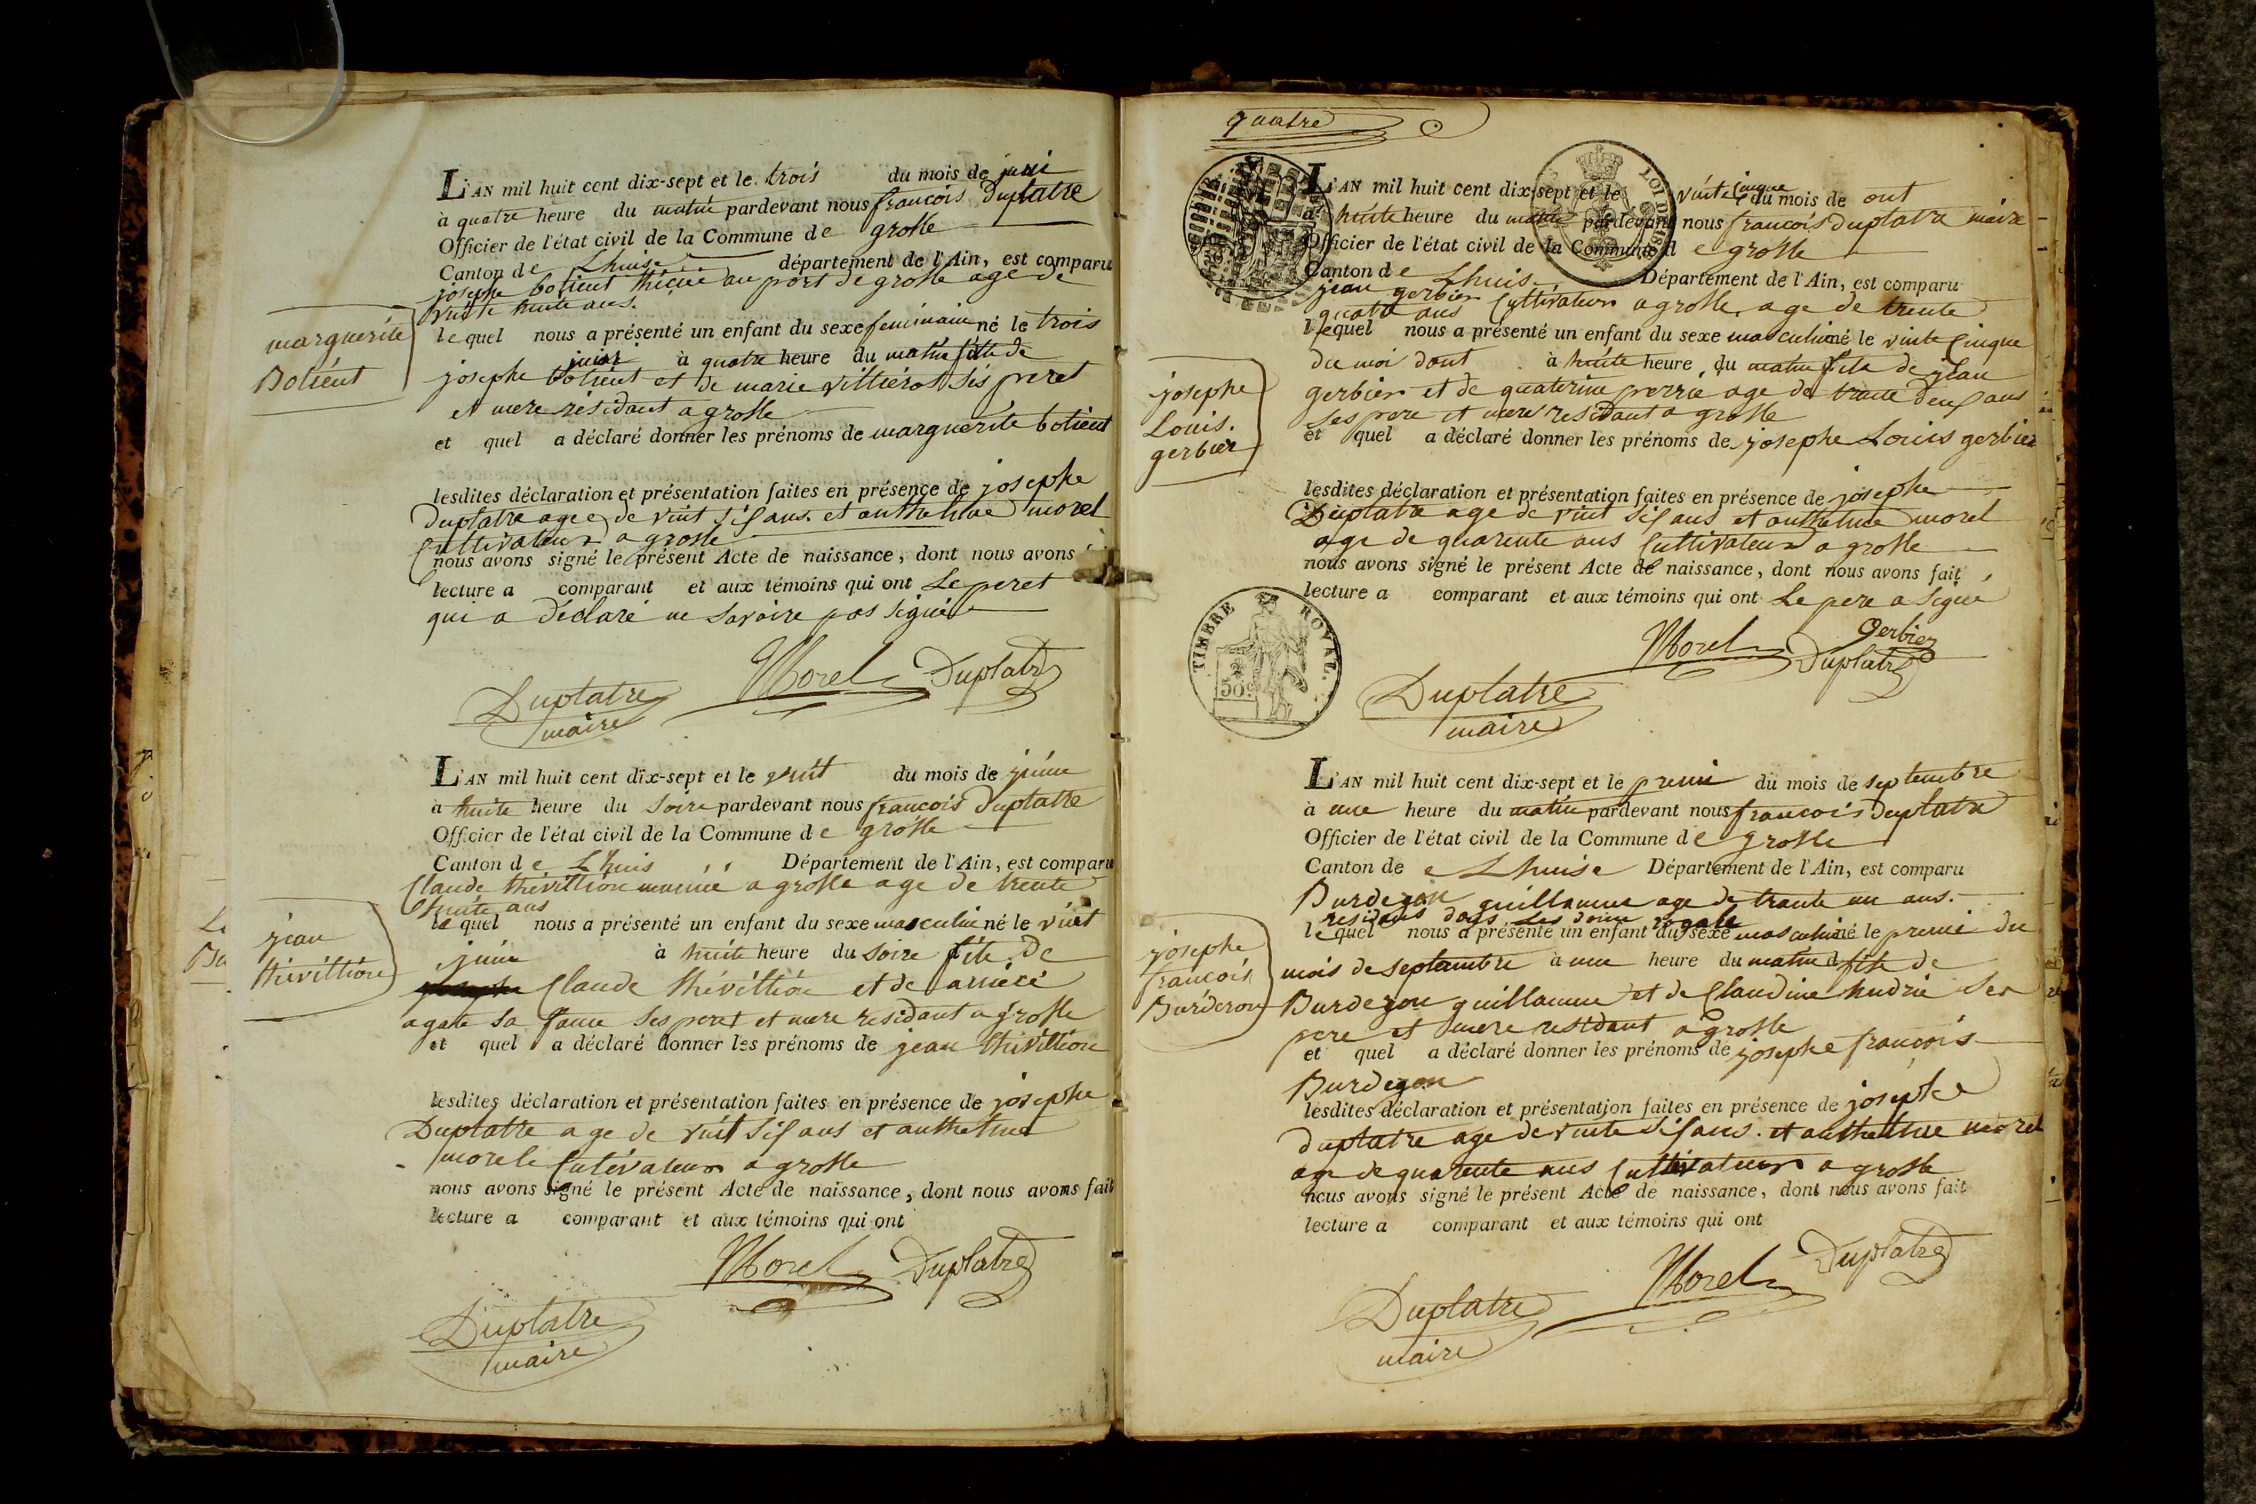 marguerite
Botient
L'AN mil huit cent dix-sept et le trois du mois de juin
à quatre heure du matin pardevant nous francois Duplatre
Officier de l'état civil de la Commune de grosle
Canton de Lhuise département de l'Ain, est comparu
josephe botient au port de grosle age de
vinte huite ans.
lequel nous a présenté un enfant du sexe feminain né le trois
juin à quatre heure du matin fille de
josephe botient et de marie villierot ses peret
et mere résidant a grosle
et quel a déclaré donner les prénoms de marguerite botient
lesdites déclaration et présentation faites en présence de josephe
Duplatre agee de vint sis ans. et anthelme morel
Cultivateur a grosle
nous avons signé le présent Acte de naissance, dont nous avons
lecture a comparant et aux témoins qui ont Le peret
qui a déclaré ne savoire pas signié
Morel Duplatre
Duplatre
maire
jean
thévillion
L'AN mil huit cent dix-sept et le vint du mois de juin
à huite heure du soire pardevant nous francois Duplatre
Officier de l'état civil de la Commune de grosle
Canton de Lhuis Département de l'Ain, est comparu
Claude thévillion a grosle age de trente
huite ans
lequel nous a présenté un enfant du sexe masculin né le vint
juin à huite heure du soire fils de
Claude thévillion et de
agate sa fame ses peret et mere residant a grosle
et quel a déclaré donner les prénoms de jean thévillion
lesdites déclaration et présentation faites en présence de josephe
Duplatre age de vint sis ans et anthelme
morel Cultivateur a grosle
nous avons signé le présent Acte de naissance, dont nous avons fait
lecture a comparant et aux témoins qui ont
Morel Duplatre
Duplatre
maire
quatre
LOI DE 18
josephe
Louis.
gerbier
L'AN mil huit cent dix-sept et le vinte cinque du mois de out
à huite heure du matin pardevant nous francois duplatre maire
Officier de l'état civil de la Commune de grosle
Canton de Lhuis Département de l'Ain, est comparu
jean gerbier Cultivateur a grosle age de trente
quatre ans
lequel nous a présenté un enfant du sexe masculin né le vinte Cinque
du moi dout à huite heure du matin fils de jean
gerbier et de quaterine perrin age de trante deux ans
ses pere et mere residant a grosle
et quel a déclaré donner les prénoms de josephe Louis gerbier
lesdites déclaration et présentation faites en présence de josephe
Duplatre age de vint sis ans et anthelme morel
age de quarente ans Cultivateur a grosle
nous avons signé le présent Acte de naissance, dont nous avons fait
lecture a comparant et aux témoins qui ont Le pere a signé
TIMBRE ROYAL
50c
Morel Gerbier
Duplatre
Duplatre
maire
josephe
francois
Burderon
L'AN mil huit cent dix-sept et le premi du mois de septembre
à une heure du matin pardevant nous francois Duplatre
Officier de l'état civil de la Commune de grosle
Canton de e Lhuise Département de l'Ain, est comparu
Burderon guillaume age de trante un ans.
lequel nous a présenté un enfant du sexe masculin né le premi du
mois de septembre à une heure du matin fils de
Burderon guillaume et de Claudine hudrie ses
pere et mere residant a grosle
et quel a déclaré donner les prénoms de josephe francois
Burderon
lesdites déclaration et présentation faites en présence de josephe
duplatre age de vinte sis ans. et anthelme morel
age de quarente ans Cultivateur a grosle
nous avons signé le présent Acte de naissance, dont nous avons fait
lecture a comparant et aux témoins qui ont
Morel Duplatre
Duplatre
maire